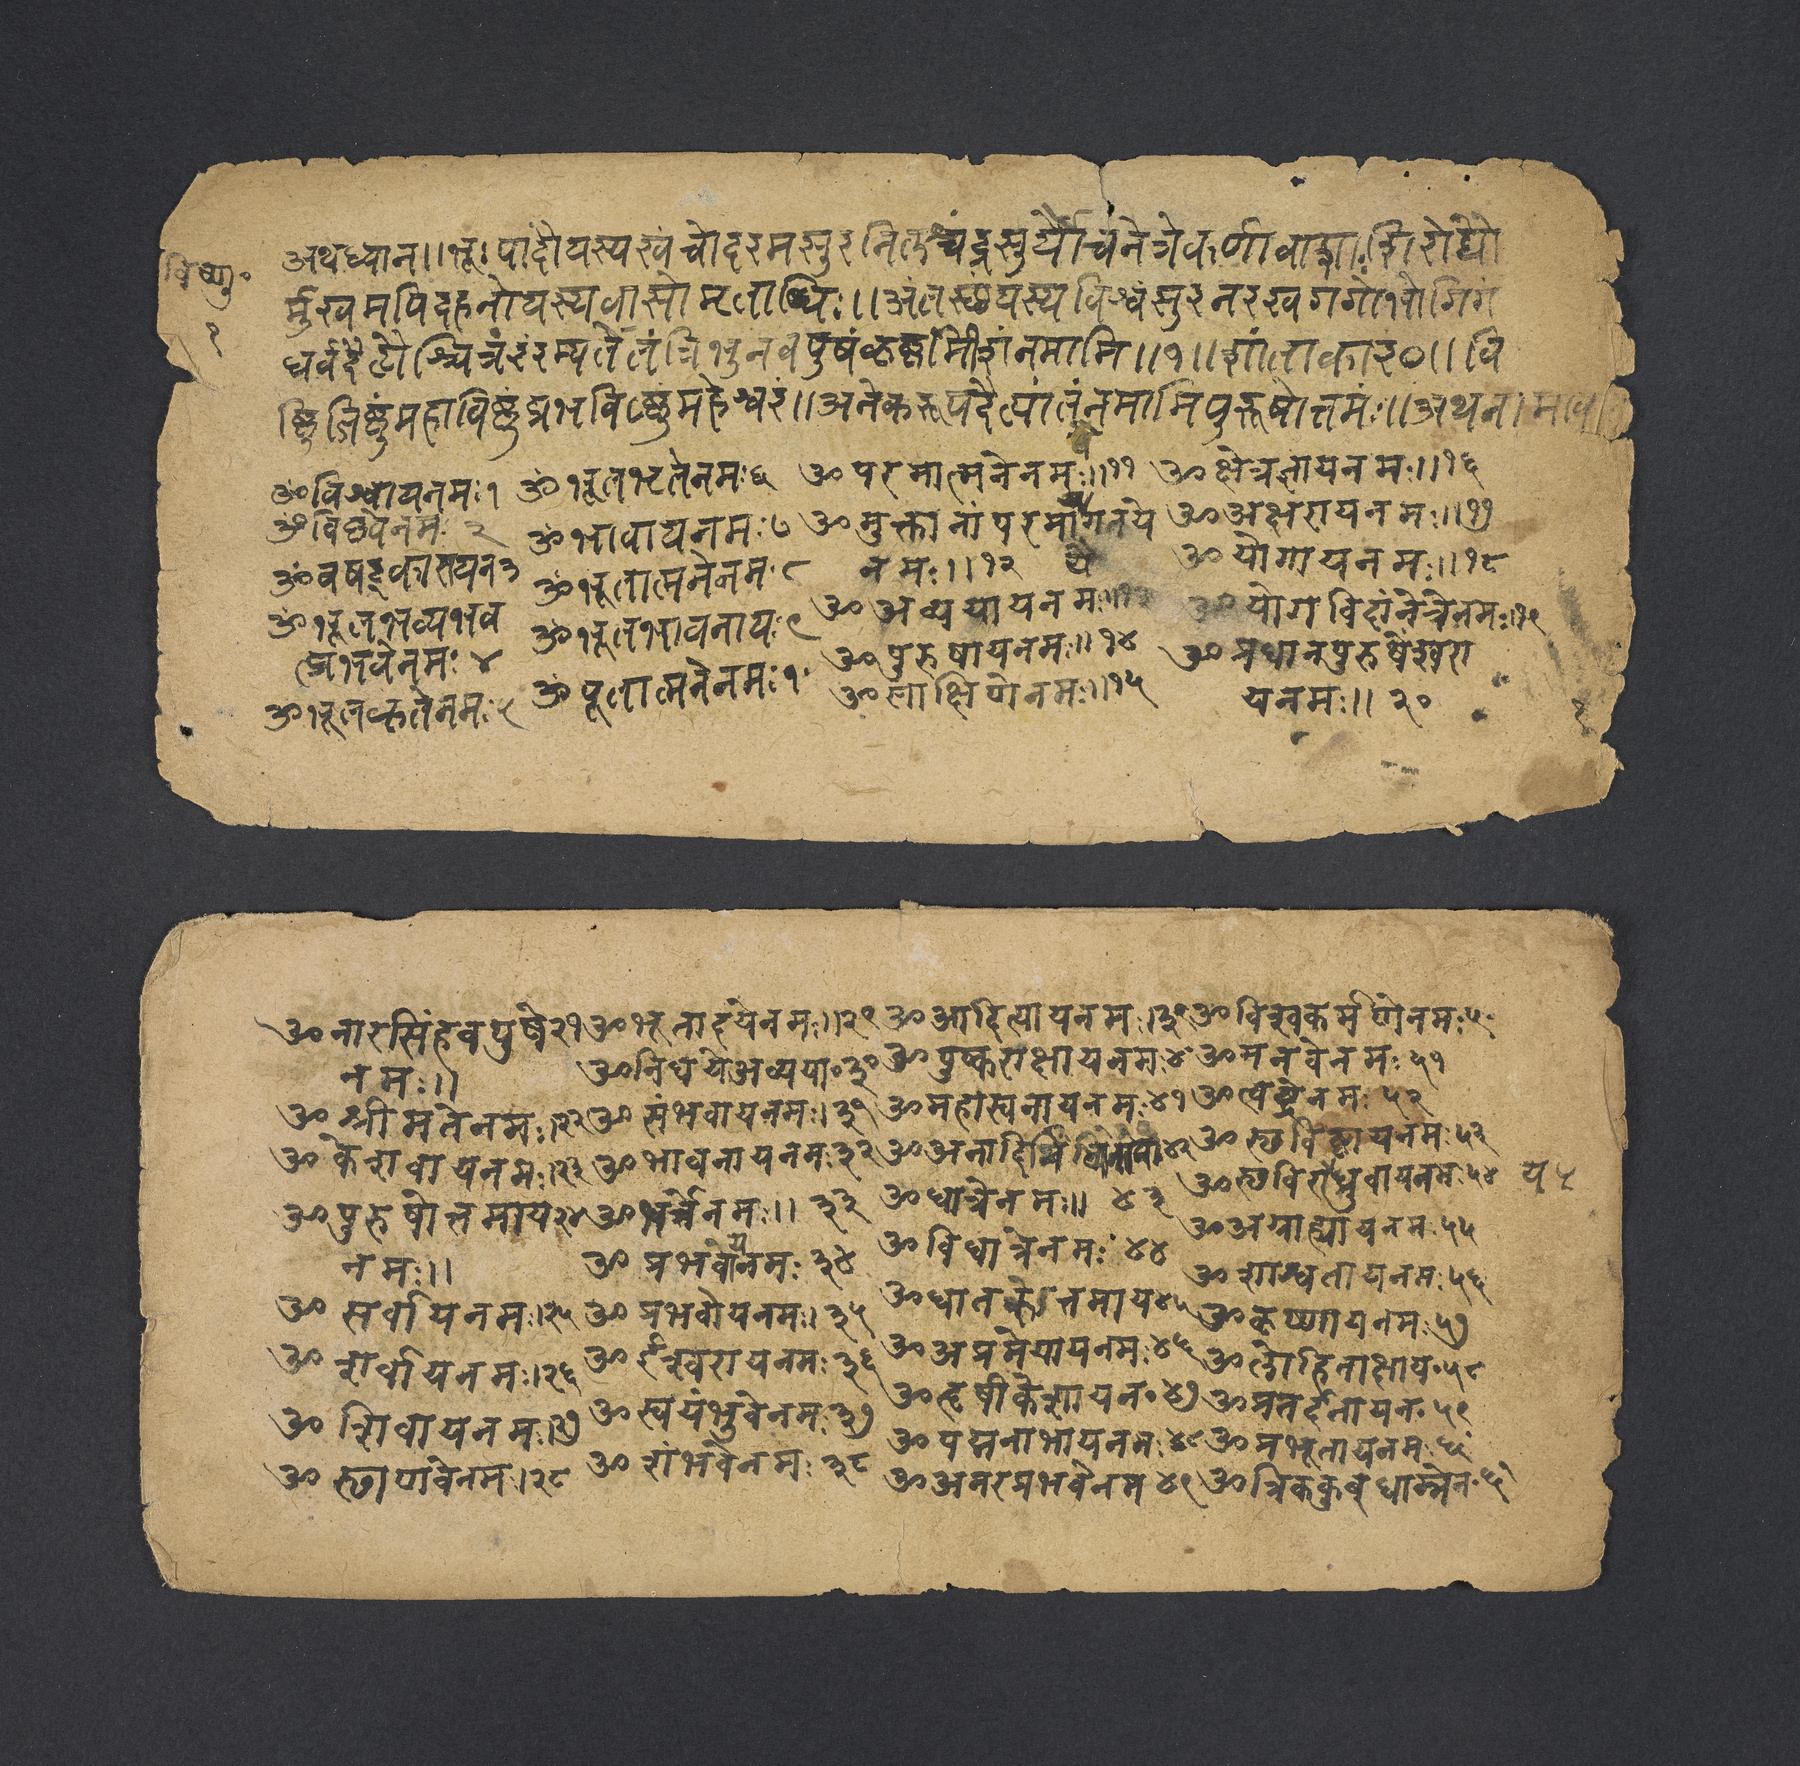 विष्णु॰
१
अथध्यान।।भू। पादौयस्यखंचोदरमसुरनिलश्चंद्रसुर्यौचनेत्रेकर्णावाशा।शिरोद्यौ
र्मुखमपिदहनोयस्यवासोमताब्धिः।।अंतस्छंयस्यविश्वंसुरनरखगगोभोगिगं
धर्वदैत्यैश्चित्रंरंरम्यतेतंत्रिभुनवपुषंविष्णुमीशंनमामि।।१।।शांताकार०।।वि
ष्णुंजिष्णुंमहाविष्णुंप्रभविष्णुंमहेश्वरं।।अनेकरूपदैत्यांतंनमामिपुरूषोत्तमं।।अथनामाव
ॐविश्वायनमः१
ॐविष्णवेनमः २
ॐवषट्कारायन३
ॐभूतभव्यभव
त्प्रभवेनमः ४
ॐभूतकृतेनमः५
ॐभूतभृतेनमः६
ॐभावायनमः७
ॐभूतात्मनेनमः८
ॐभूतभावनायः९
ॐपूतात्मनेनमः१॰
ॐपरमात्मनेनमः।।११
ॐमुक्तानांपरमागतये
नमः।।१२
ॐअव्ययायनमः।।१३
ॐपुरुषायनमः।।१४
ॐसाक्षिणेनमः।।१५
ॐक्षेत्रज्ञायनमः।।१६
ॐअक्षरायनमः।।१७
ॐयोगायनमः।।१८
ॐयोगविदांनेत्रेनमः।।१९
ॐप्रधानपुरुषेश्वरा
यनमः।। २०
ॐनारसिंहवपुषे२१
नमः।।
ॐश्रीमतेनमः।२२
ॐकेशवायनमः।२३
ॐपुरुषोत्तमाय२४
नमः।।
ॐसर्वायनमः।२५
ॐशर्वायनमः।२६
ॐशिवायनमः।२७
ॐस्छाणवेनम।२८
ॐभूतादयेनमः।।२९
ॐनिधयेअव्यया॰३०
ॐसंभवायनमः।३१
ॐभावनायनमः३२
ॐभर्त्रेनमः।। ३३
ॐप्रभवेनमः ३४
ॐप्रभवेयनमः।३५
ॐईश्वरायनमः३६
ॐस्वयंभुवेनमः३७
ॐशंभवेनमः ३८
ॐआदित्यायनमः।३९
ॐपुष्कराक्षायनमः४॰
ॐमहास्वनायनमः४१
ॐअनादिनिधनाय४२
ॐधात्रेनमः।। ४३
ॐविधात्रेनमः ४४
ॐधातवेउत्तमाय४५
ॐअप्रमेयायनमः४६
ॐहृषीकेशायन॰४७
ॐपद्मनाभायनमः४८
ॐअमरप्रभवेनम४९
ॐविश्वकर्मणेनमः५॰
ॐमनवेनमः५१
ॐत्वष्ट्रेनमः ५२
ॐस्छविष्ठायनमः५३
ॐस्छविराध्रुवायनमः५४
ॐअग्राह्यायनमः५५
ॐशाश्वतायनमः५६
ॐकृष्णायनमः५७
ॐलोहिताक्षाय॰५८
ॐप्रतर्दनायन॰५९
ॐप्रभूतायनमः६॰
ॐत्रिककुब्धाम्नेन॰६१